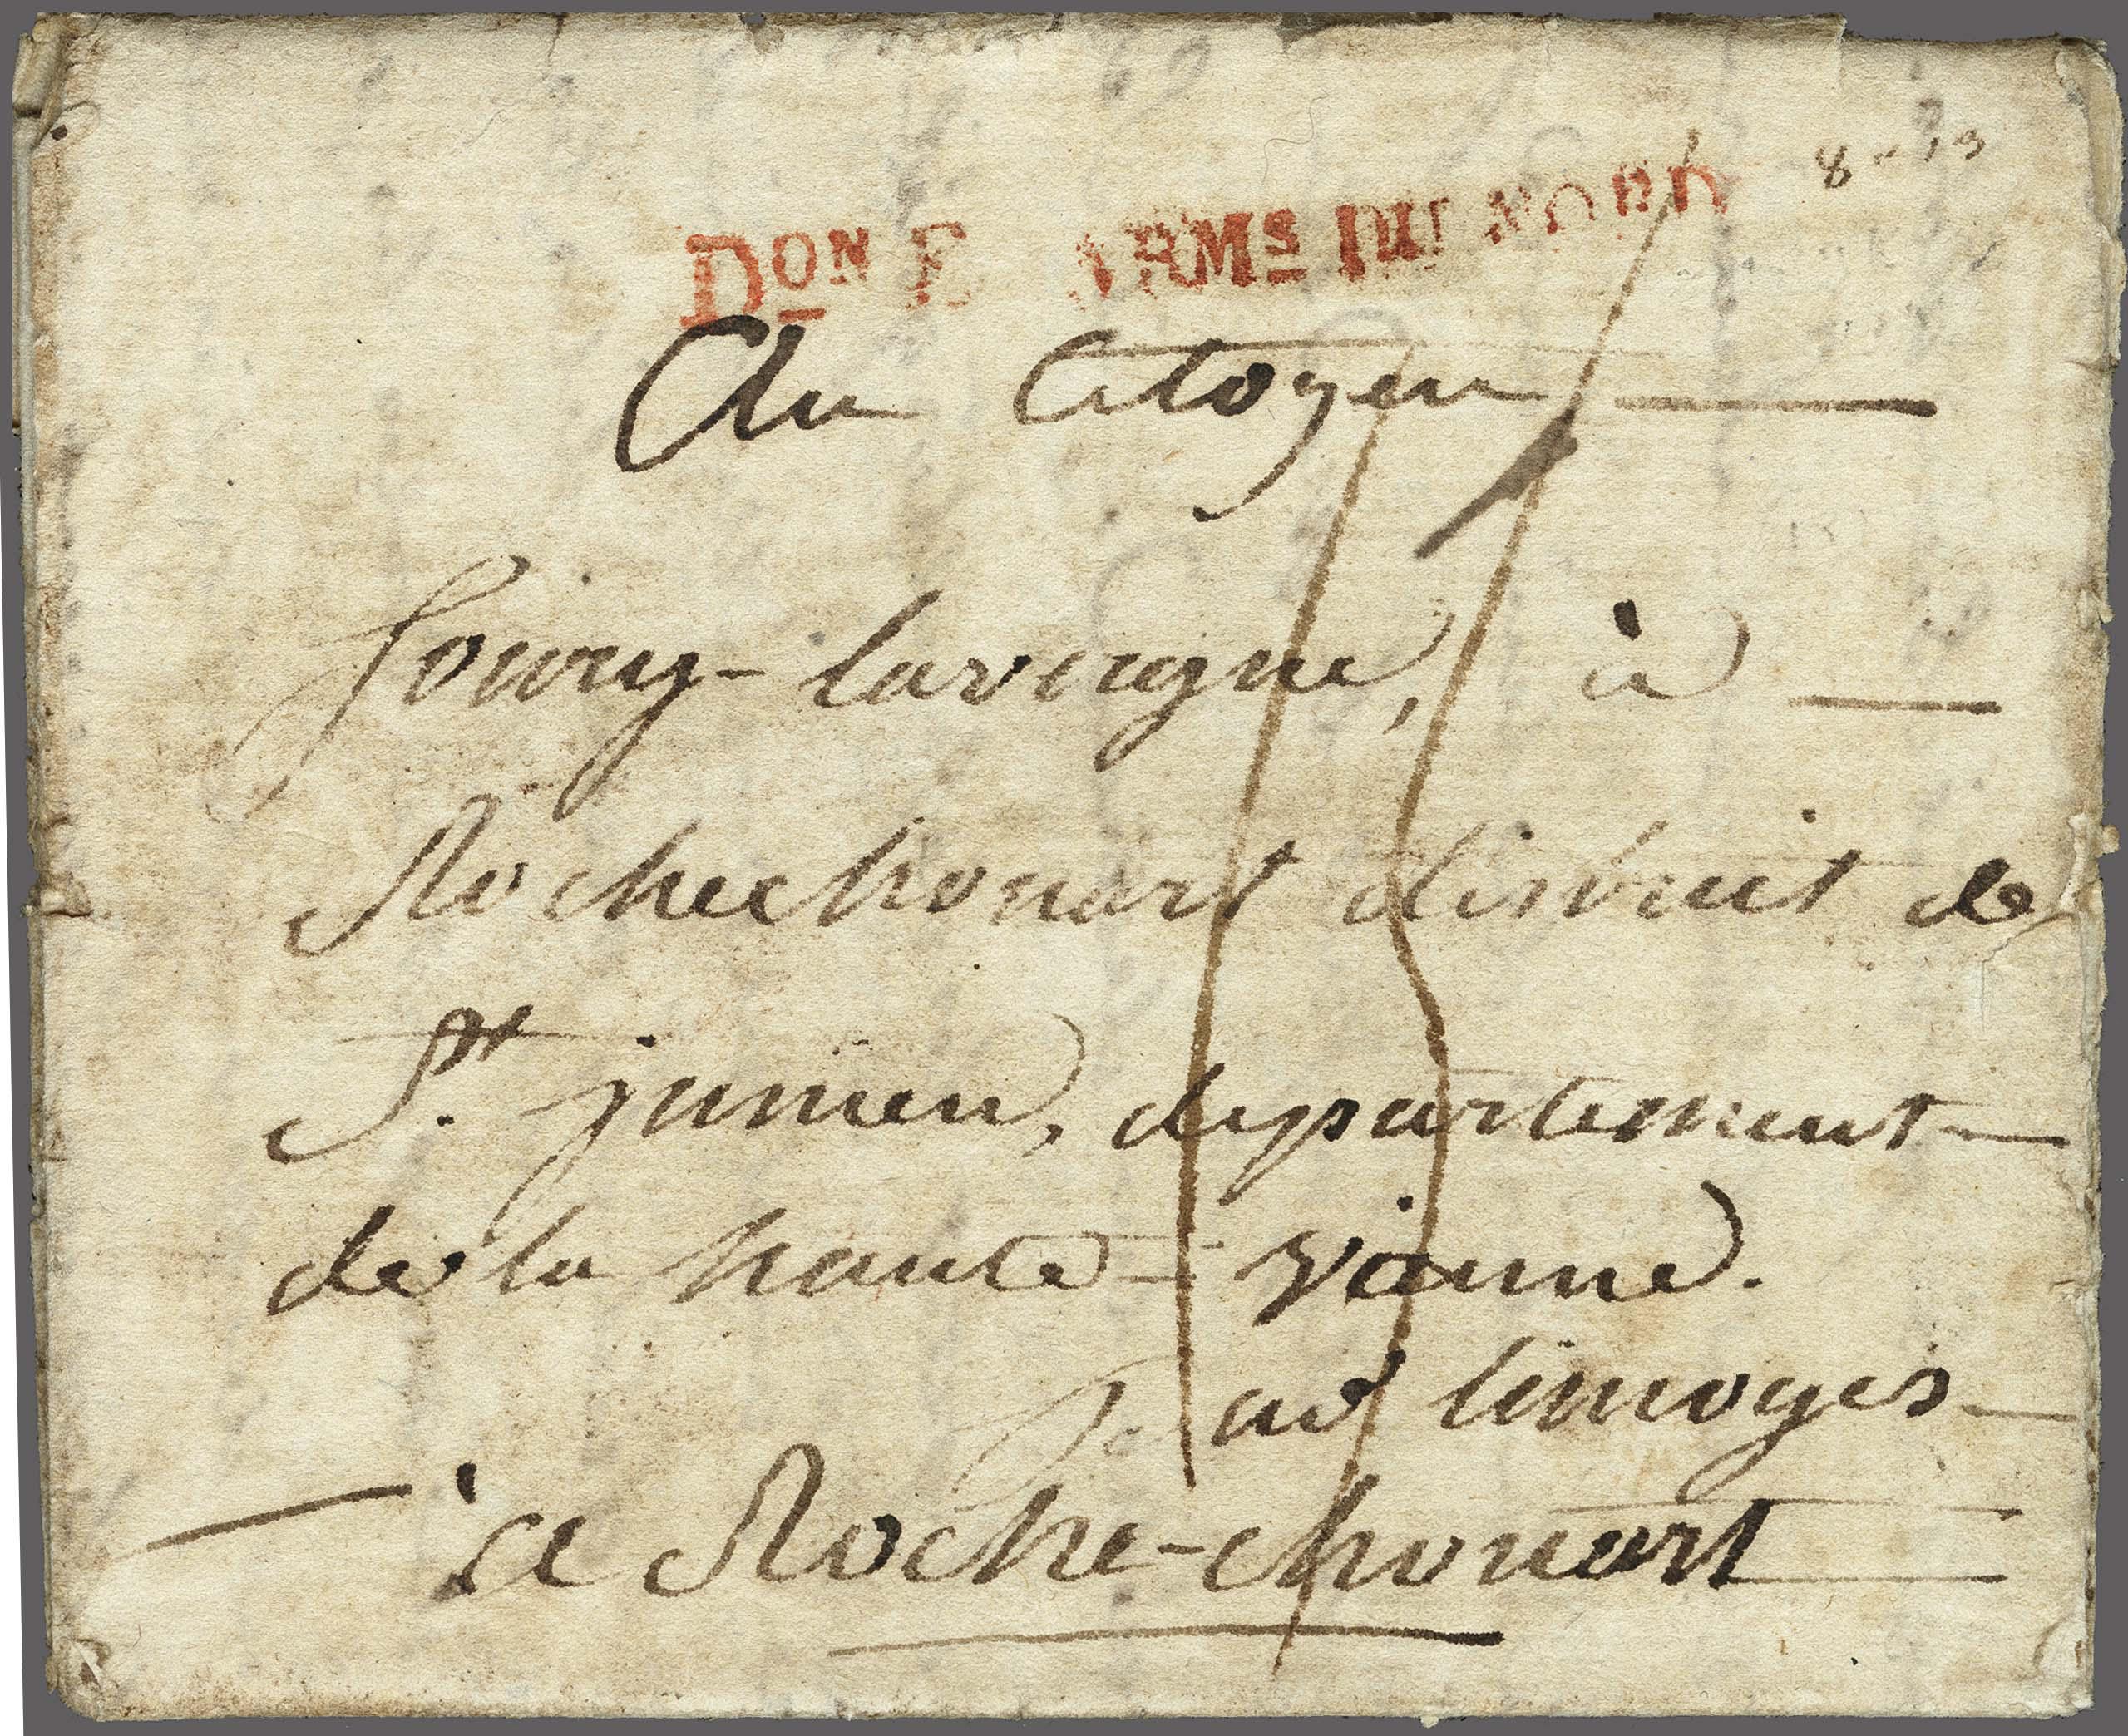 8
DON E ARMS DU NORD
Au Citoyen
lavergne, à
Rochechouart district de
St. junien, departement
de la haute = vienne.
par limoges
à Roche-chouart